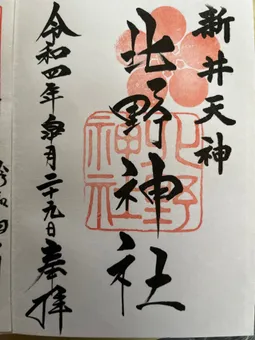 新井天神
北野神社
北野神社
令和四年皐月二十九日奉拝